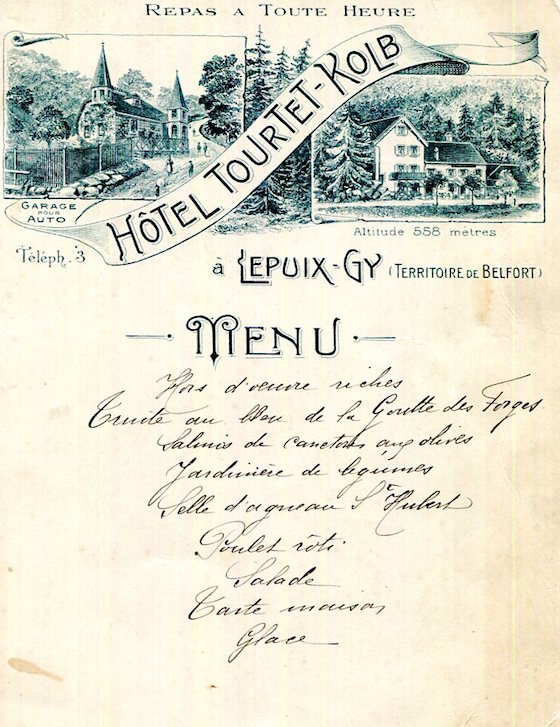 REPAS A TOUTE HEURE
HÔTEL TOURTET-KOLB
GARAGE
POUR
AUTO
Téléph. 3
Altitude 558 mètres
à LEPUIX-GY (TERRITOIRE DE BELFORT)
MENU
Hors d'oeuvre riches
Truite au bleu de la Goutte des Forges
Salmis de canetons aux olives
Jardinière de légumes
Selle d'agneau St Hubert
Poulet rôti
Salade
Tarte maison
Glace